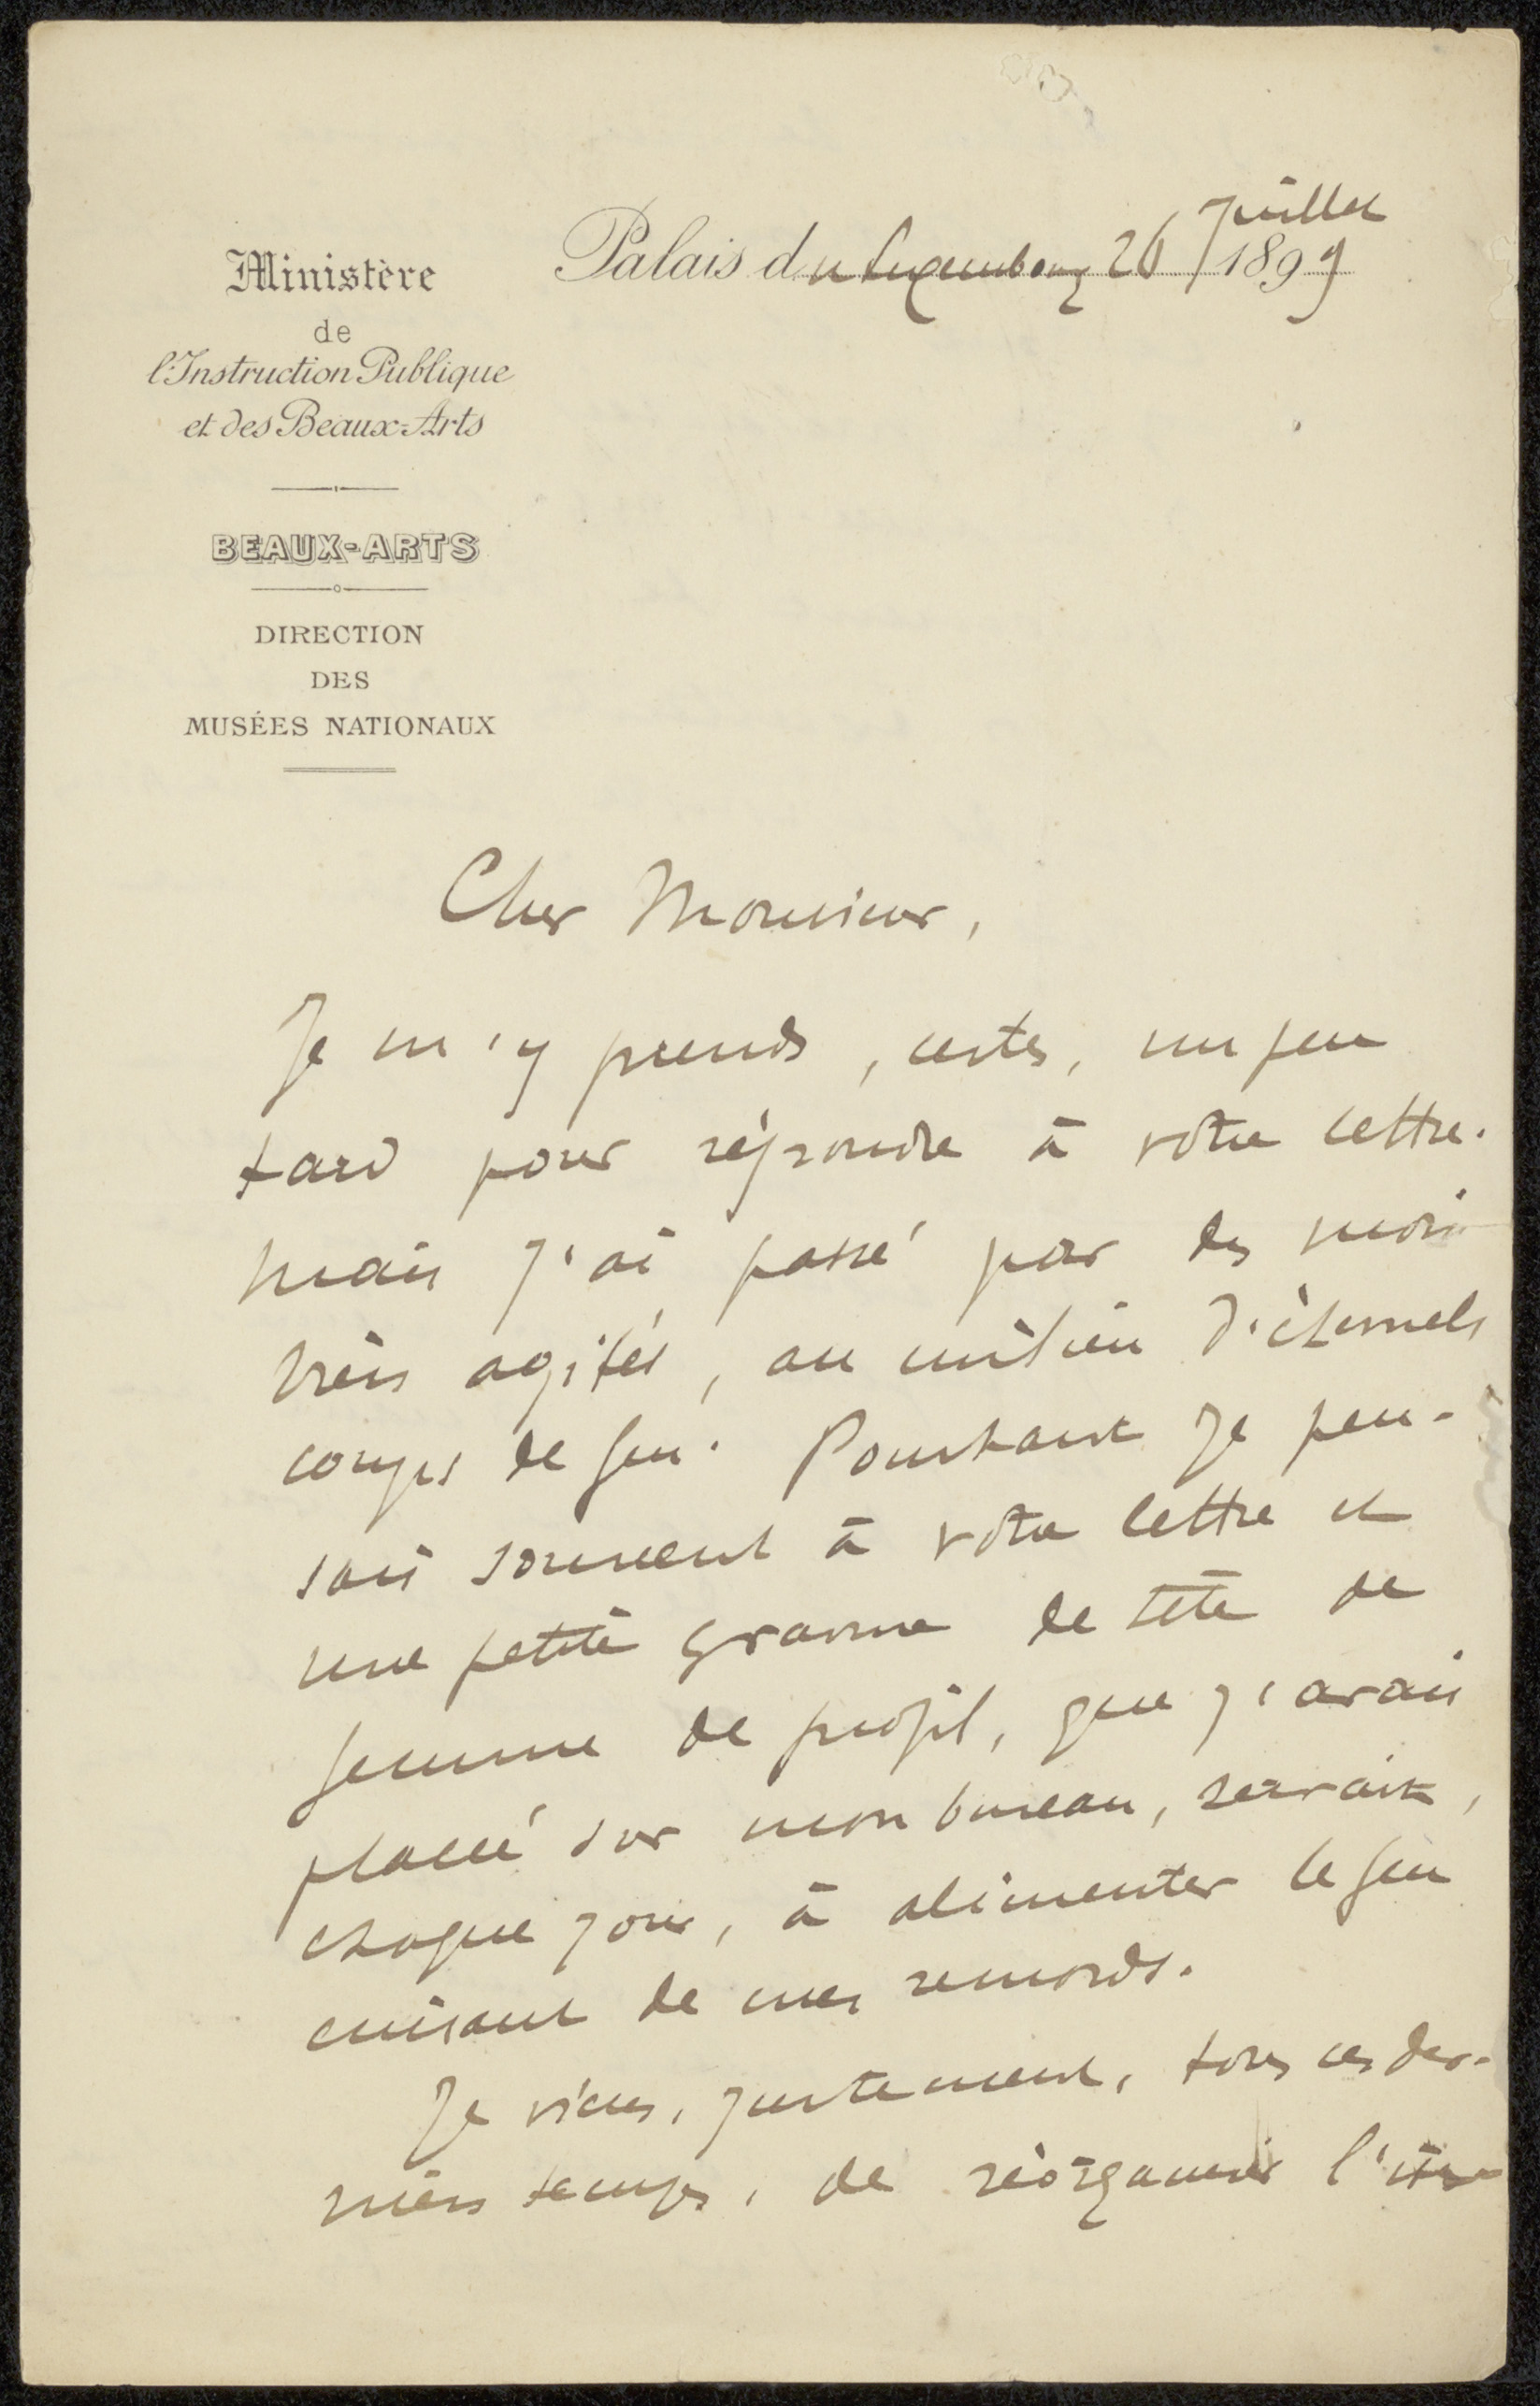 Ministère
de
l'Instruction Publique
et des Beaux-Arts
BEAUX-ARTS
DIRECTION
DES
MUSÉES NATIONAUX
Palais du Luxembourg 26 Juillet 1899
Cher Monsieur,
Je m'y prends, certes, un peu
tard pour répondre à votre lettre.
Mais j'ai passé par des mois
très agités, au milieu d'éternels
coups de feu. Pourtant je pen-
sais souvent à votre lettre et
une petite gravure de tête de
femme de profil, que j'avais
placé sur mon bureau, servait,
chaque jour, à alimenter le feu
cuisant de mes remords.
Je viens, justement, tous ces der-
niers temps, de réorganiser